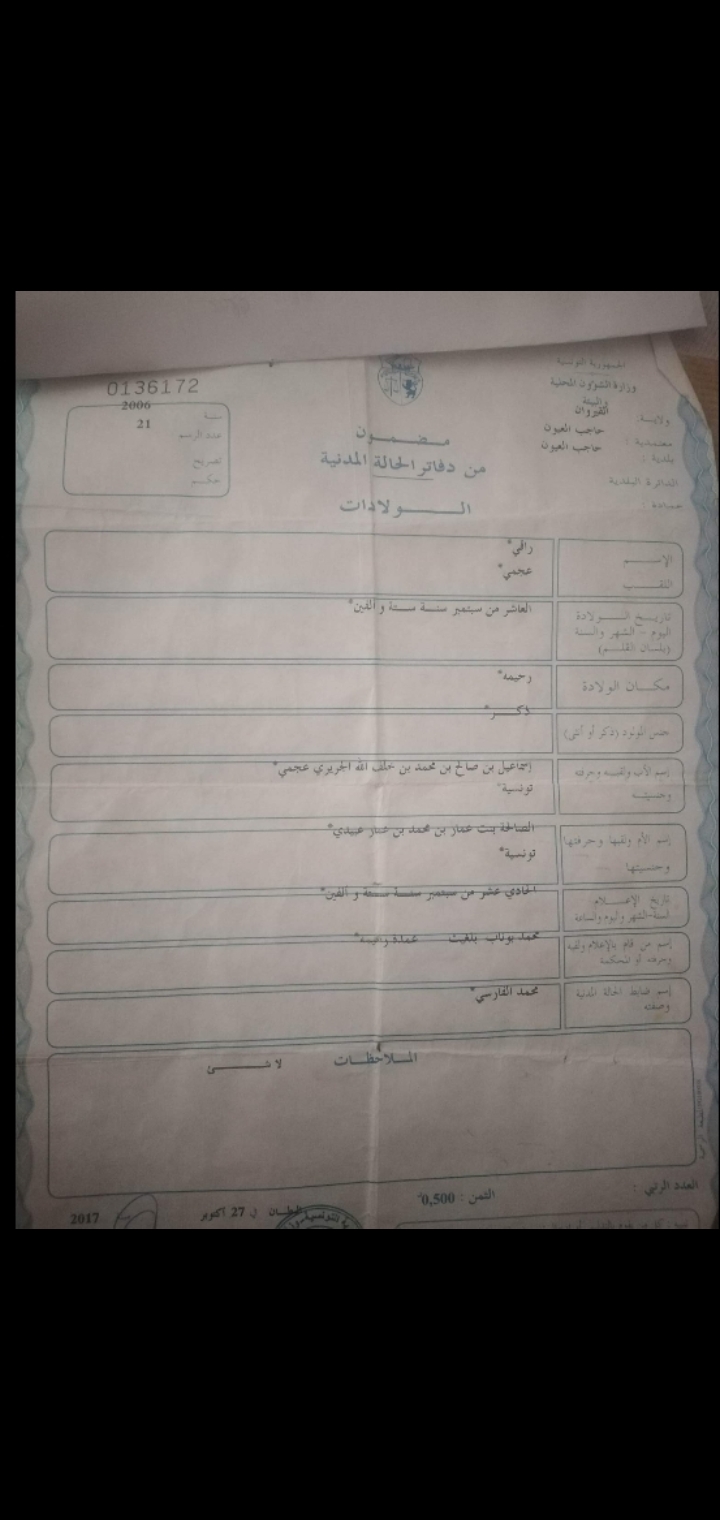 الجمهورية التونسية
وزارة الشؤون المحلية
والبيئة
ولاية: القيروان
معتمدية : حاجب العيون
بلدية : حاجب العيون
الدائرة البلدية
0136172
سنة 2006
عدد الرسم 21
تصريح
حكم
مضمون
من دفاتر الحالة المدنية
الولادات
الإسم رافي*
اللقب عجمي*
تاريخ الولادة العاشر من سبتمبر سنة ستة و ألفين*
اليوم - الشهر والسنة
(بلسان القلم)
مكان الولادة رحيمه*
ذكر*
جنس المولود (ذكر أو أنثى)
إسم الأب ولقبه وحرفته إسماعيل بن صالح بن محمد بن خلف الله الجريري عجمي*
وجنسيته تونسية*
إسم الأم ولقبها وحرفتها الصالحة بنت عمار بن محمد بن عمار عبيدي*
وجنسيتها تونسية*
تاريخ الإعلام الحادي عشر من سبتمبر سنة ستة و ألفين*
السنة-الشهر واليوم والساعة
إسم من قام بالإعلام ولقبه محمد بوناب بلغيث عمدة
وحرفته أو المحكمة
إسم ضابط الحالة المدنية محمد الفارسي*
وصفته
الملاحظات لا شئ
العدد الرتبي :
الثمن : 0,500
في 27 أكتوبر 2017